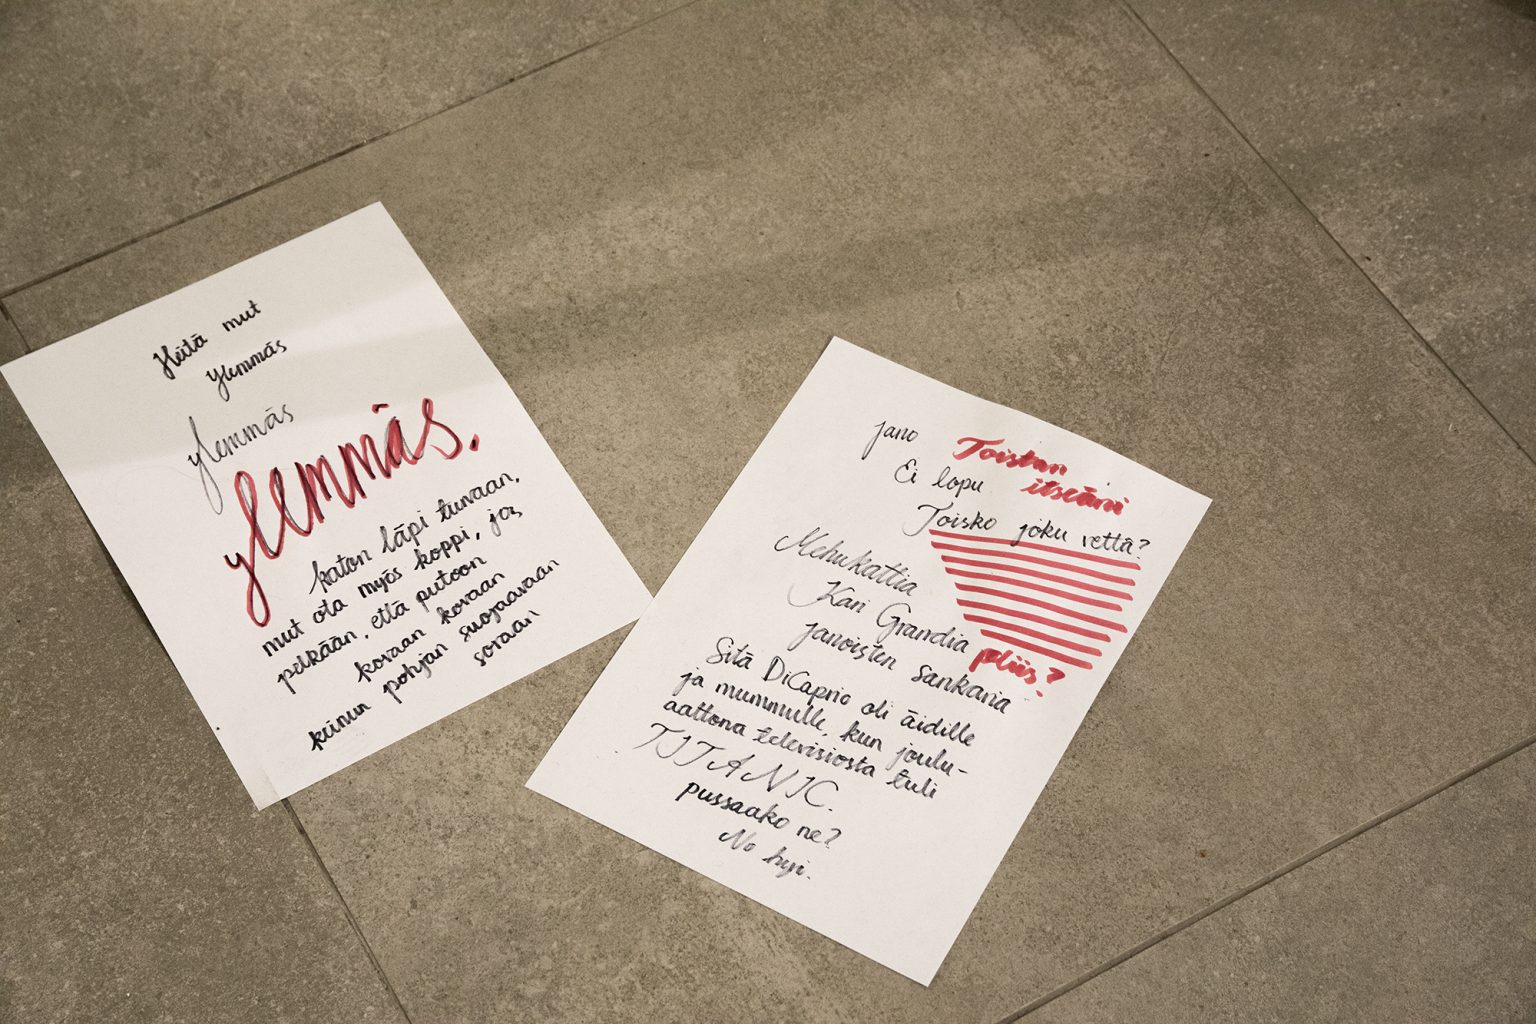 Heitä mut
ylemmäs
ylemmäs
ylemmäs.
katon läpi tuvaan,
mut ota myös koppi, jos
pelkään, että putoon
kovaan kovaan
pohjan suojaavaan
keinun soraan
jano Toistan
Ei lopu itseäni
Toisko joku vettä?
Mehukattia
Kari Grandia
janoisten sankaria
pliis?
Sitä DiCaprio oli äidille
ja mummulle, kun joulu-
aattona televisiosta tuli
TITANIC.
pussaako ne?
No hyi.